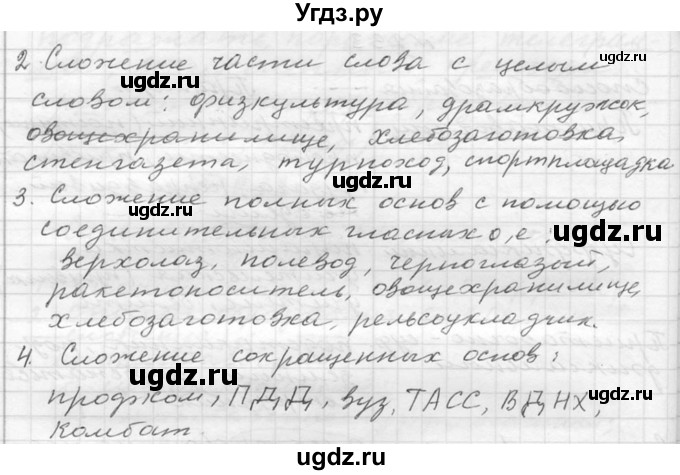 Угдз.ру
2 Сложение части слова с целым
словом: физкультура, драмкружок,
овощехранилище, хлебозаготовка,
стенгазета, турпоход, спортплощадка
3. Сложение полных основ с помощью
соединительных гласных о, е:
верхолаз, полевод, черноглазый,
ракетоноситель, овощехранилище,
хлебозаготовка, рельсоукладчик.
4. Сложение сокращенных основ:
продком, ПДД, вуз, ТАСС, ВДНХ,
комбат.
ugdz.ru
ugdz.ru
ugdz.ru
ugdz.ru
ugdz.ru
ugdz.ru
ugdz.ru
ugdz.ru
ugdz.ru
ugdz.ru